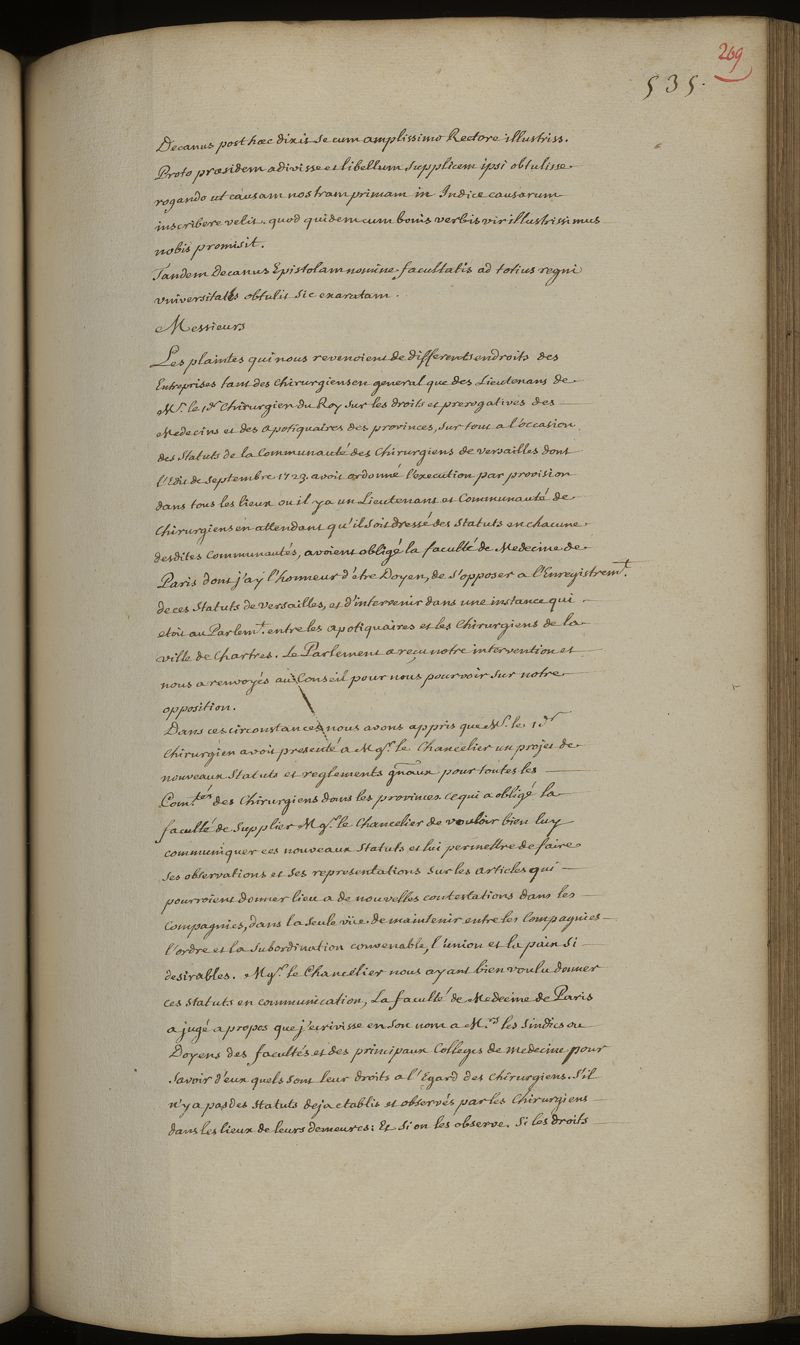 209
535.
Decanus post hæc dixit se cum amplissimo Rectore illustriss.
Proto præsidem adivisse et libellum supplicem ipsi obtulisse
rogando ut causam nostram primam in Indice causarum
inscribere velit. quod quidem cum bonis verbis vir illustrissimus
nobis promisit.
Tandem Decanus Epistolam nomine facultatis ad totius regni
universitates obtulit sic exaratam.
Messieurs
Les plaintes qui nous revenoient de differents endroits des
Entreprises tant des Chirurgiens en general que des Lieutenans de
Mr. le 1er Chirurgien du Roy sur les droits et prerogatives des
Medecins et des Apotiquaires des provinces, sur tout a l'occasion
des Statuts de la Communauté des Chirurgiens de versailles dont
l'Edit de Septembre 1723. avoit ordonné l'execution par provision
dans tous les lieux ou il y a un Lieutenant et Communauté de
Chirurgiens en attendant qu'il soit dressé des Statuts en chacune
desdites Communautés, avoient obligé la faculté de Medecine de
Paris dont j'ay l'honneur d'être Doyen, de s'opposer a l'Enregistremt.
de ces Statuts de versailles, et d'intervenir dans une instance qui
etoit au Parlemt. entre les apotiquaires et les Chirurgiens de la
ville de Chartres. Le Parlement a reçu notre intervention et
nous a renvoyés au Conseil pour nous pourvoir sur notre
opposition.
Dans ces circonstances nous avons appris que Mr. le 1er
Chirurgien avoit presenté a Mgr. le Chancelier un projet de
nouveaux Statuts et reglements gnaux pour toutes les
Com.tés des Chirurgiens dans les provinces. ce qui a obligé la
faculté de supplier Mgr. le Chancelier de vouloir bien luy
communiquer ces nouveaux Statuts et lui permettre de faire
ses observations et ses representations sur les articles qui
pourroient donner lieu a de nouvelles contestations dans les
Compagnies, dans la seule vüe de maintenir entre les Compagnies
l'ordre et la subordination convenable, l'union et la paix si
desirables. Mgr. le Chancelier nous ayant bien voulu donner
ces statuts en communication, La faculté de Medecine de Paris
a jugé apropos que j'ecrivisse en son nom a Mrs. les Sindics ou
Doyens des facultés et des principaux Colleges de medecine pour
savoir d'eux quels sont leur droits a l'Egard des Chirurgiens. S'il
n'y a pas des Statuts deja etablis et observés par les Chirurgiens
dans les lieux de leurs demeures: Et si on les observe. Si les droits